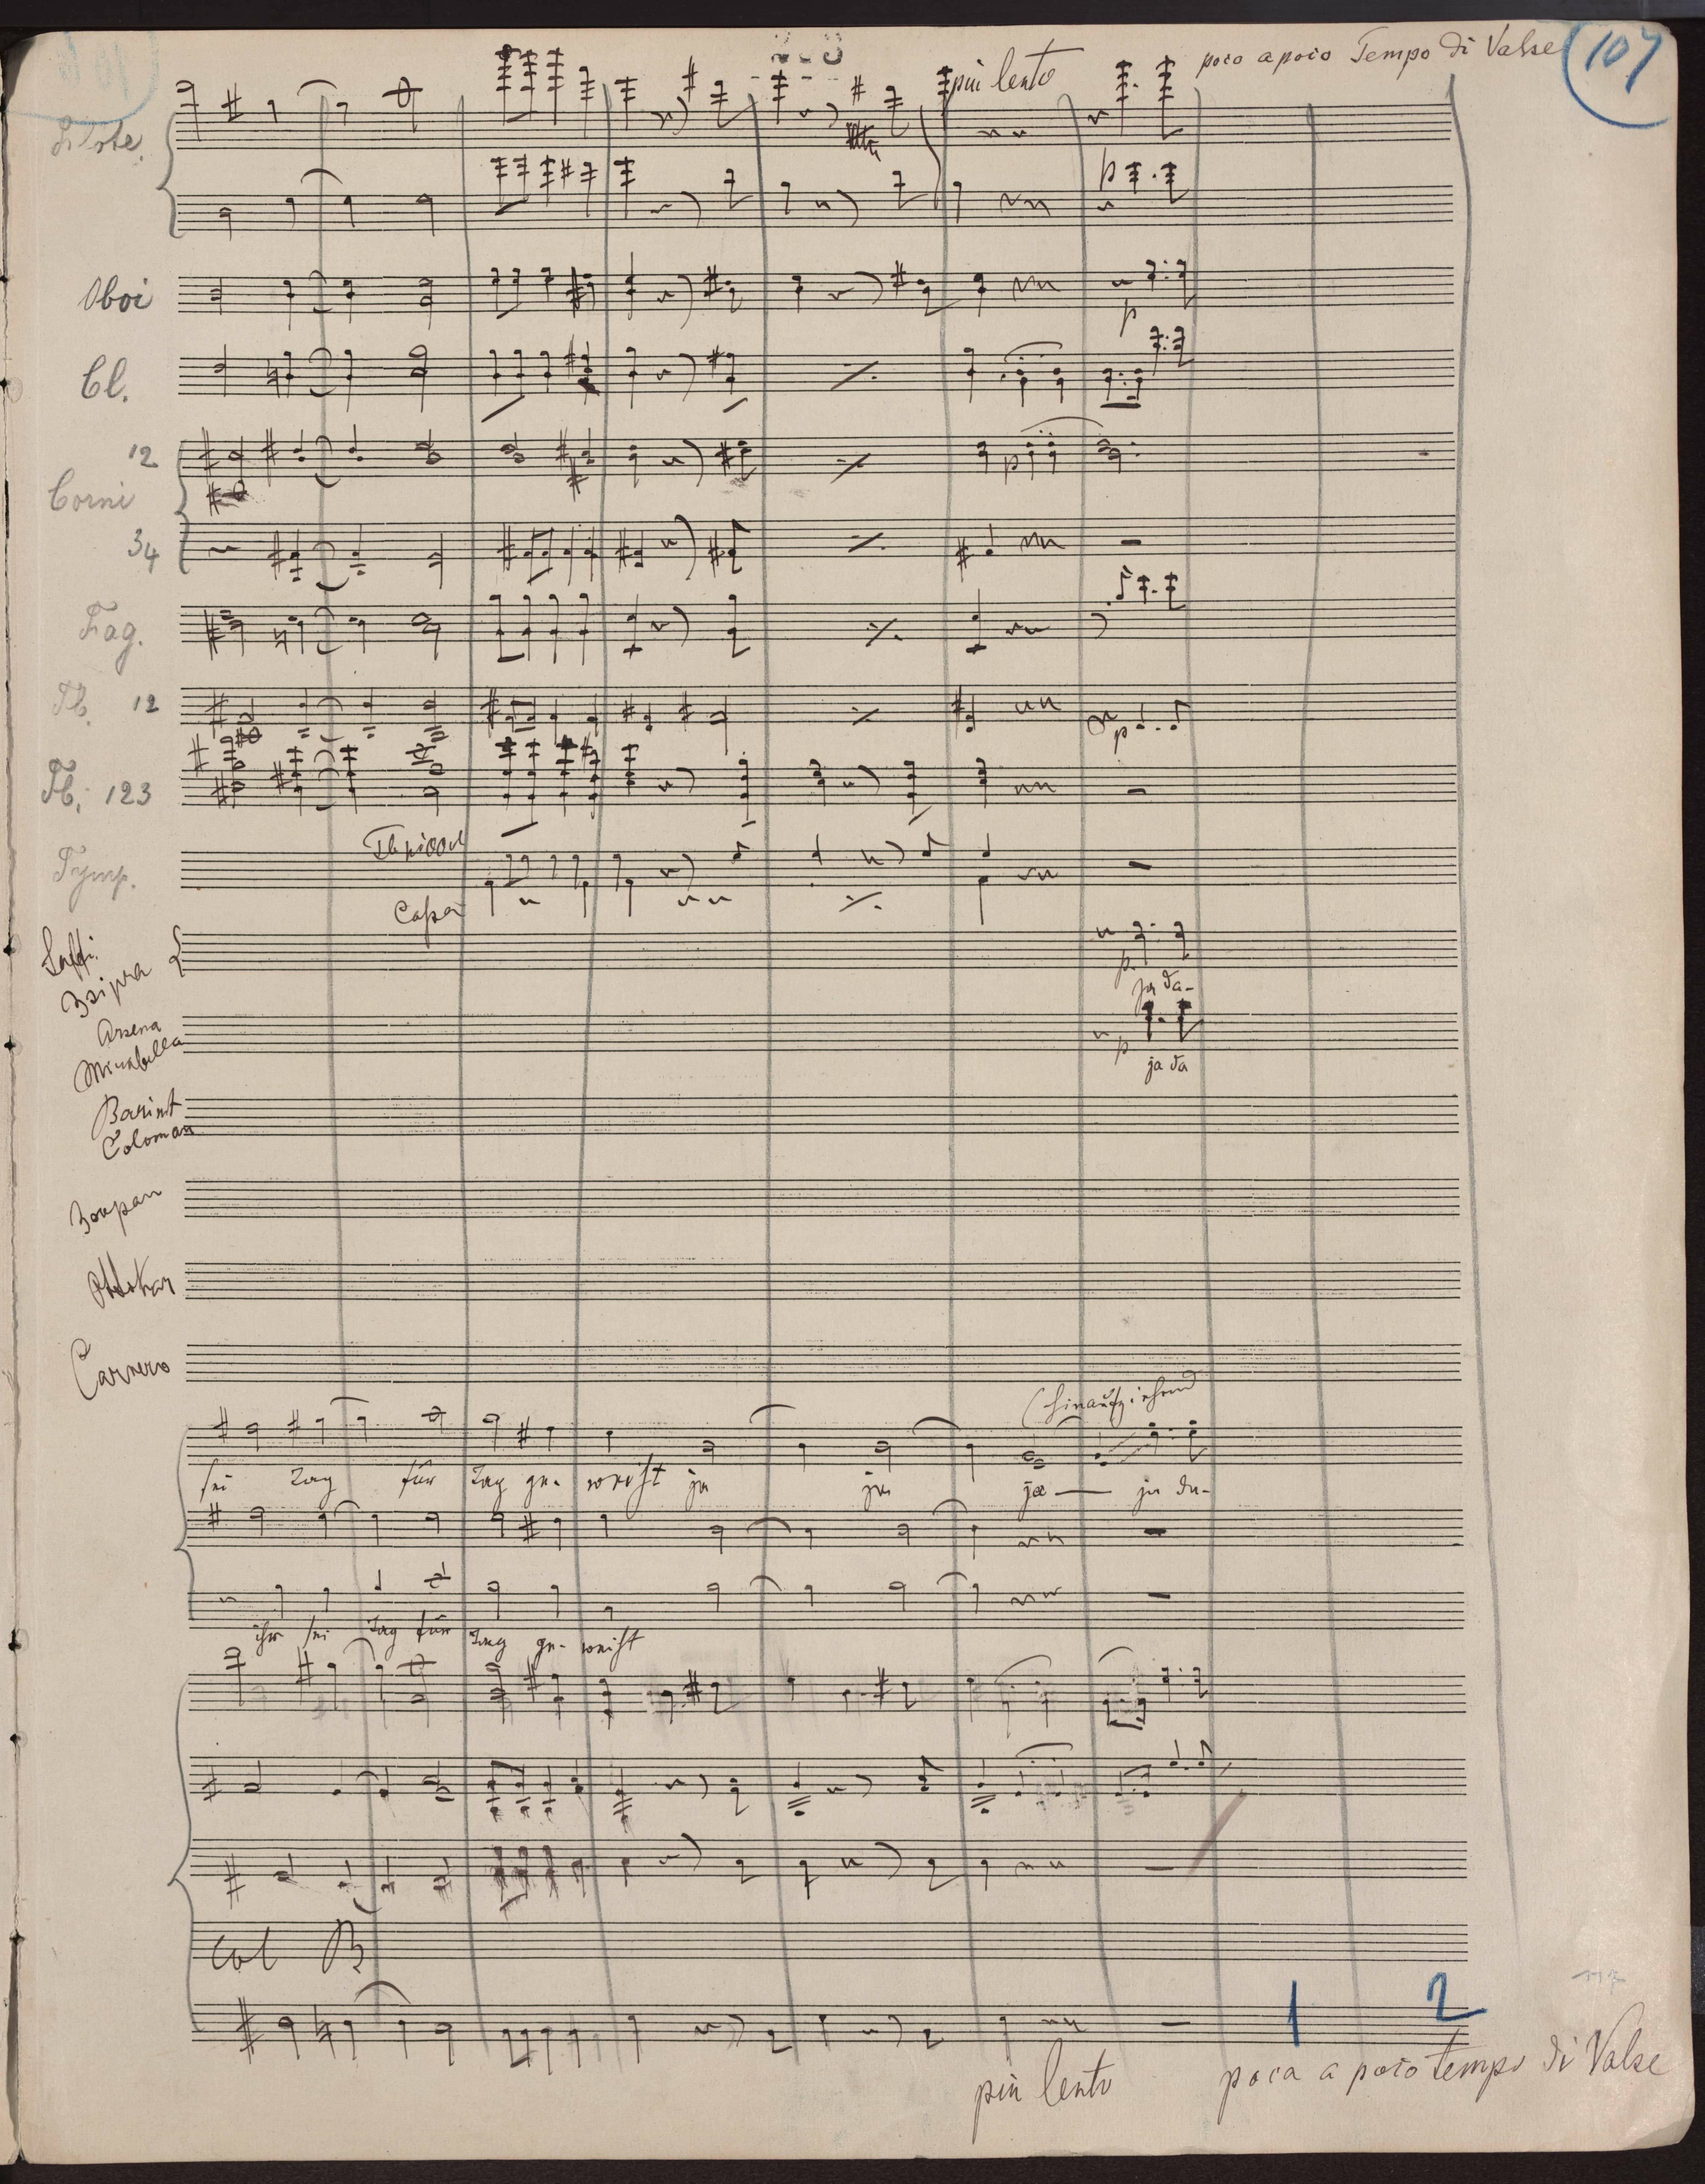 più lento
poco a poco Tempo di Valse
107
Flöte.
p
Oboi
p
Cl.
12
Corni
p
34
Fag.
12
p
Tb. 123
Tymp.
Cassa
Saffi.
Zsipra
p
ja da-
Arsena
Mirabella
p
ja da
Barint
Coloman
Zsupan
Ottokar
Carnero
(hinaufziehend
sei Tag für Tag ge- weiht ja ja ja — ja da-
ihr sei Tag für Tag ge- weiht
Col B
1 2
più lento
poca a poco tempo di Valse